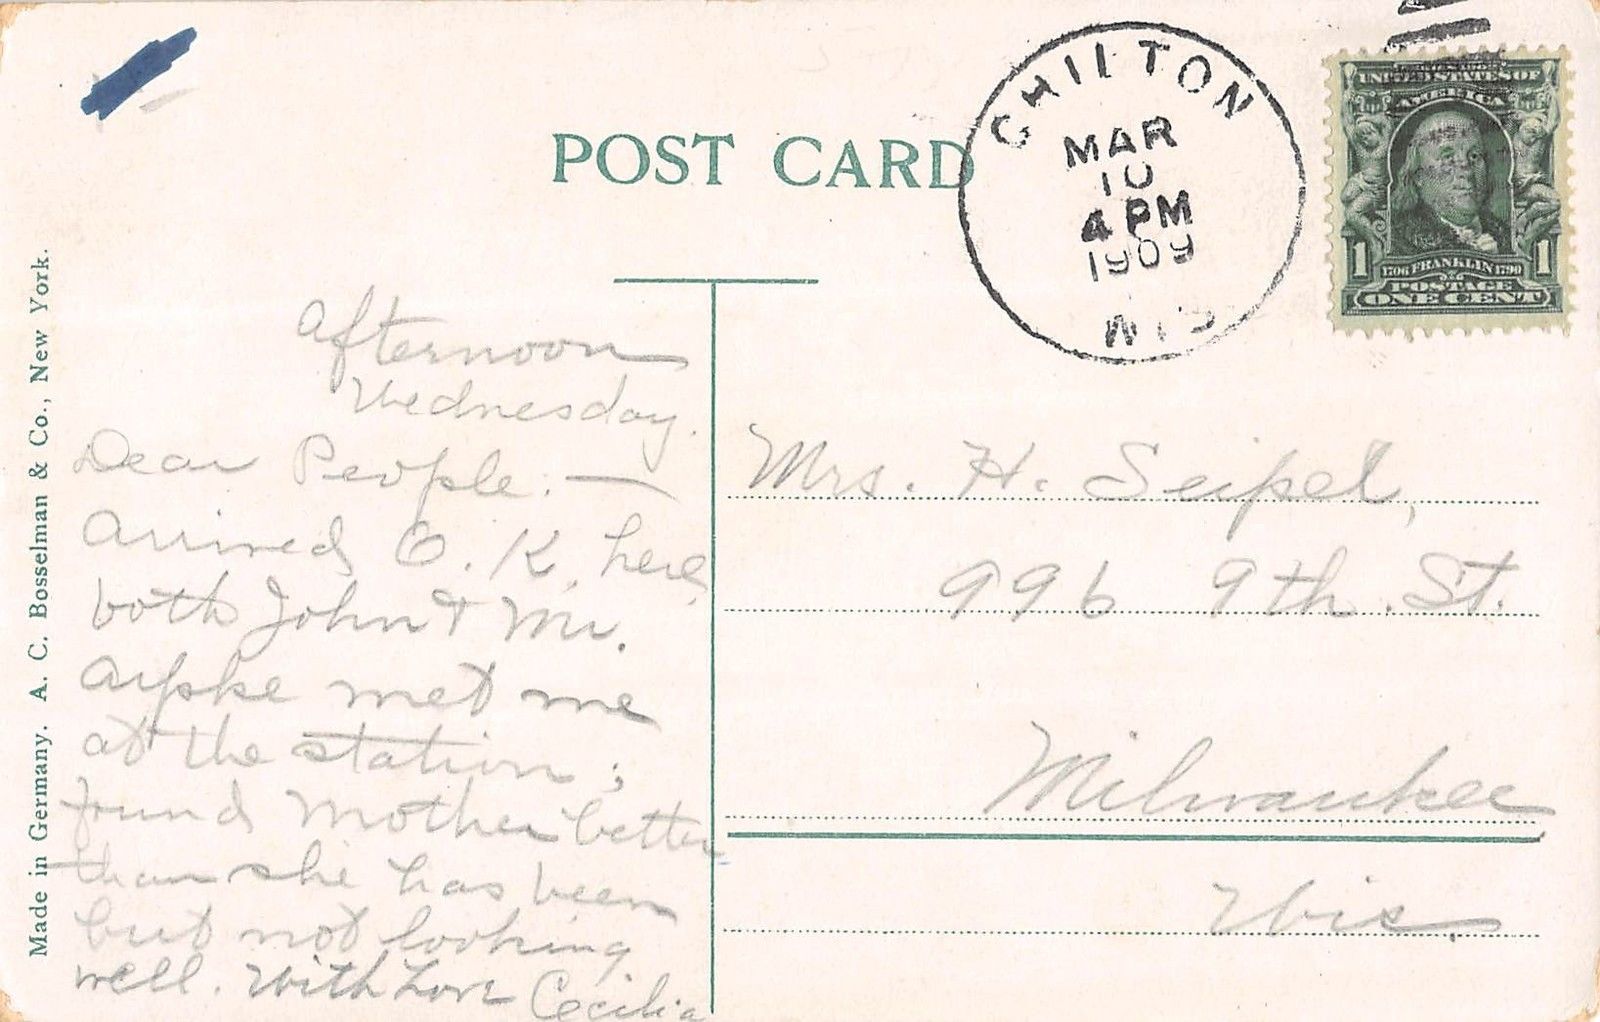 POST CARD
CHILTON
MAR
10
4 PM
1909
WIS
UNITED STATES OF
AMERICA
1 1706 FRANKLIN 1790 1
POSTAGE
ONE CENT
Made in Germany. A. C. Bosselman & Co., New York.
Afternoon
Wednesday.
Dear People:—
Arrived O.K. here,
both John & Mr.
met me
at the station;
found Mother better
than she has been
but not looking
well. With Love Cecilia
Mrs. H. Seipel,
996 9th. St.
Milwaukee
Wis.